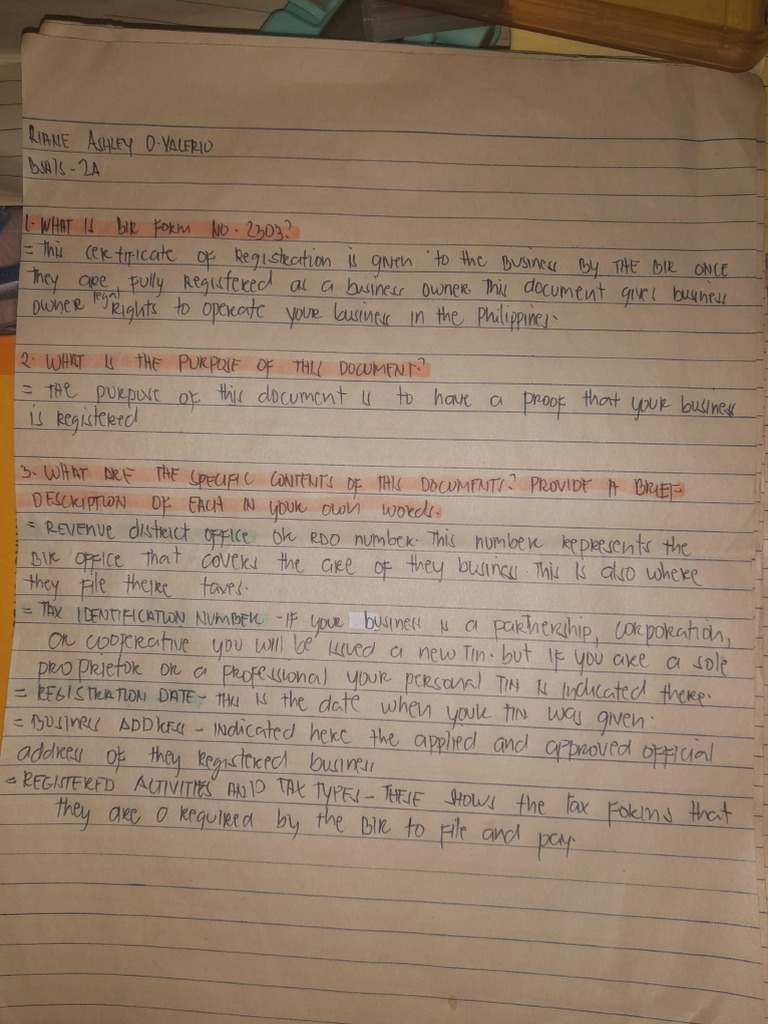 RIANE ASHLEY D. VALERIO
BSAIS - 2A
1. WHAT IS BIR FORM NO. 2303?
= This certificate of Registration is given to the Business By THE BIR ONCE
They are fully Registered as a business owner. This document gives business
owner legal Rights to operate your business in the Philippines.
2. WHAT IS THE PURPOSE OF THIS DOCUMENT?
= The purpose of this document is to have a proof that your business
is Registered
3. WHAT ARE THE SPECIFIC CONTENTS OF THIS DOCUMENTS? PROVIDE A BRIEF
DESCRIPTION OF EACH IN YOUR OWN WORDS.
= REVENUE district OFFICE OR RDO number. This number represents the
BIR OFFICE That covers the are of they business. This is also where
they file theire taxes.
= TAX IDENTIFICATION NUMBER - IF your business is a partnership, corporation,
OR cooperative you will be issued a new TIN. but if you are a sole
proprietor or a professional your personal TIN is indicated there.
= REGISTRATION DATE - THIS is the date when your TIN was given.
= BUSINESS ADDRESS - Indicated here the applied and approved official
address of they Registered business
= REGISTERED ACTIVITIES AND TAX TYPES - THESE SHOWS the Tax Forms that
they are o required by the BIR to file and pay